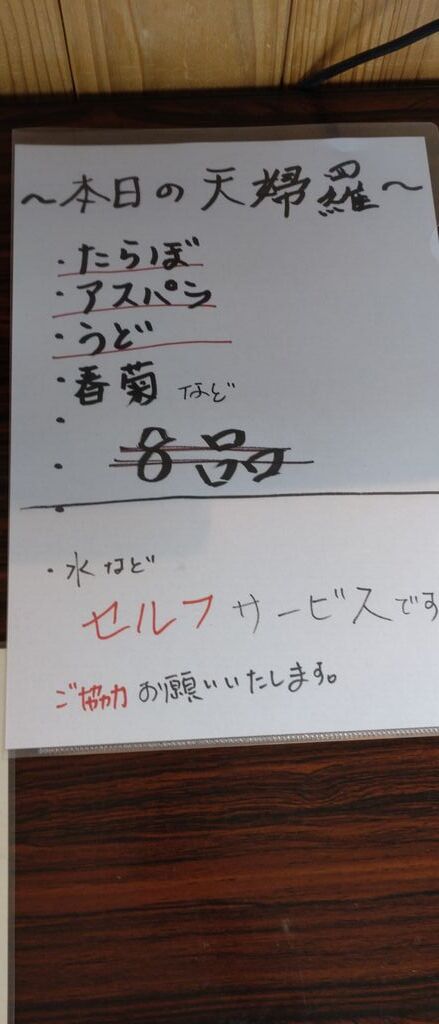 ～本日の天婦羅～
・たらぼ
・アスパラ
・うど
・春菊 など
・
・ 8品
・
・水など
セルフサービスです
ご協力お願いいたします。